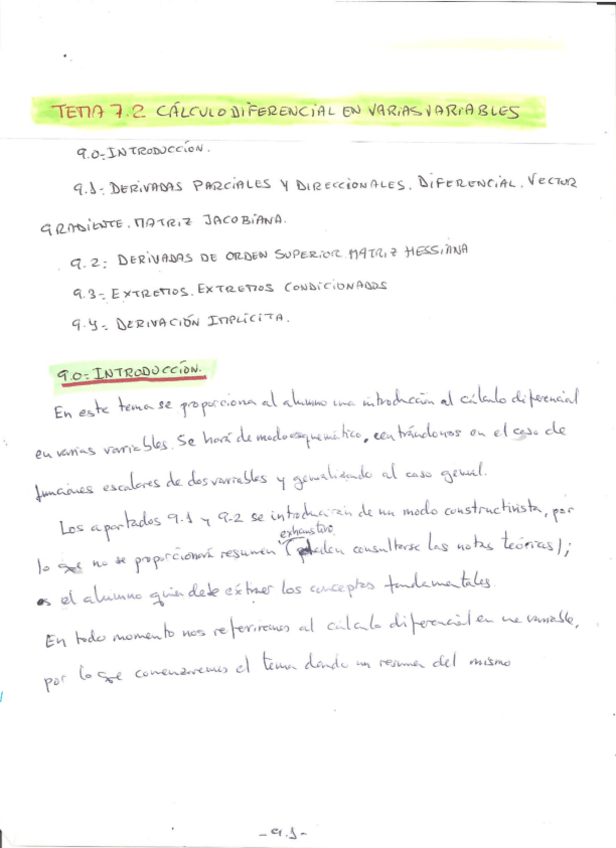 TEMA 7.2 CÁLCULO DIFERENCIAL EN VARIAS VARIABLES
9.0-INTRODUCCIÓN.
9.1- DERIVADAS PARCIALES Y DIRECCIONALES. DIFERENCIAL. VECTOR
GRADIENTE. MATRIZ JACOBIANA.
9.2- DERIVADAS DE ORDEN SUPERIOR. MATRIZ HESSIANA
9.3- EXTREMOS. EXTREMOS CONDICIONADOS
9.4- DERIVACIÓN IMPLÍCITA.
9.0-INTRODUCCIÓN.
En este tema se proporciona al alumno una introducción al cálculo diferencial
en varias variables. Se hará de modo esquemático, centrándonos en el caso de
funciones escalares de dos variables y generalizando al caso general.
Los apartados 9.1 y 9.2 se introducirán de un modo constructivista, por
exhaustivo
lo que no se proporcionará resumen (pueden consultarse las notas teóricas);
es el alumno quien debe extraer los conceptos fundamentales.
En todo momento nos referiremos al cálculo diferencial en una variable,
por lo que comenzaremos el tema dando un resumen del mismo
-9.1-